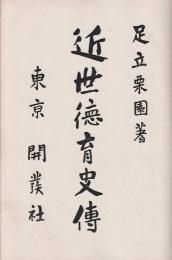 足立栗園著
近世德育史傳
東京 開發社